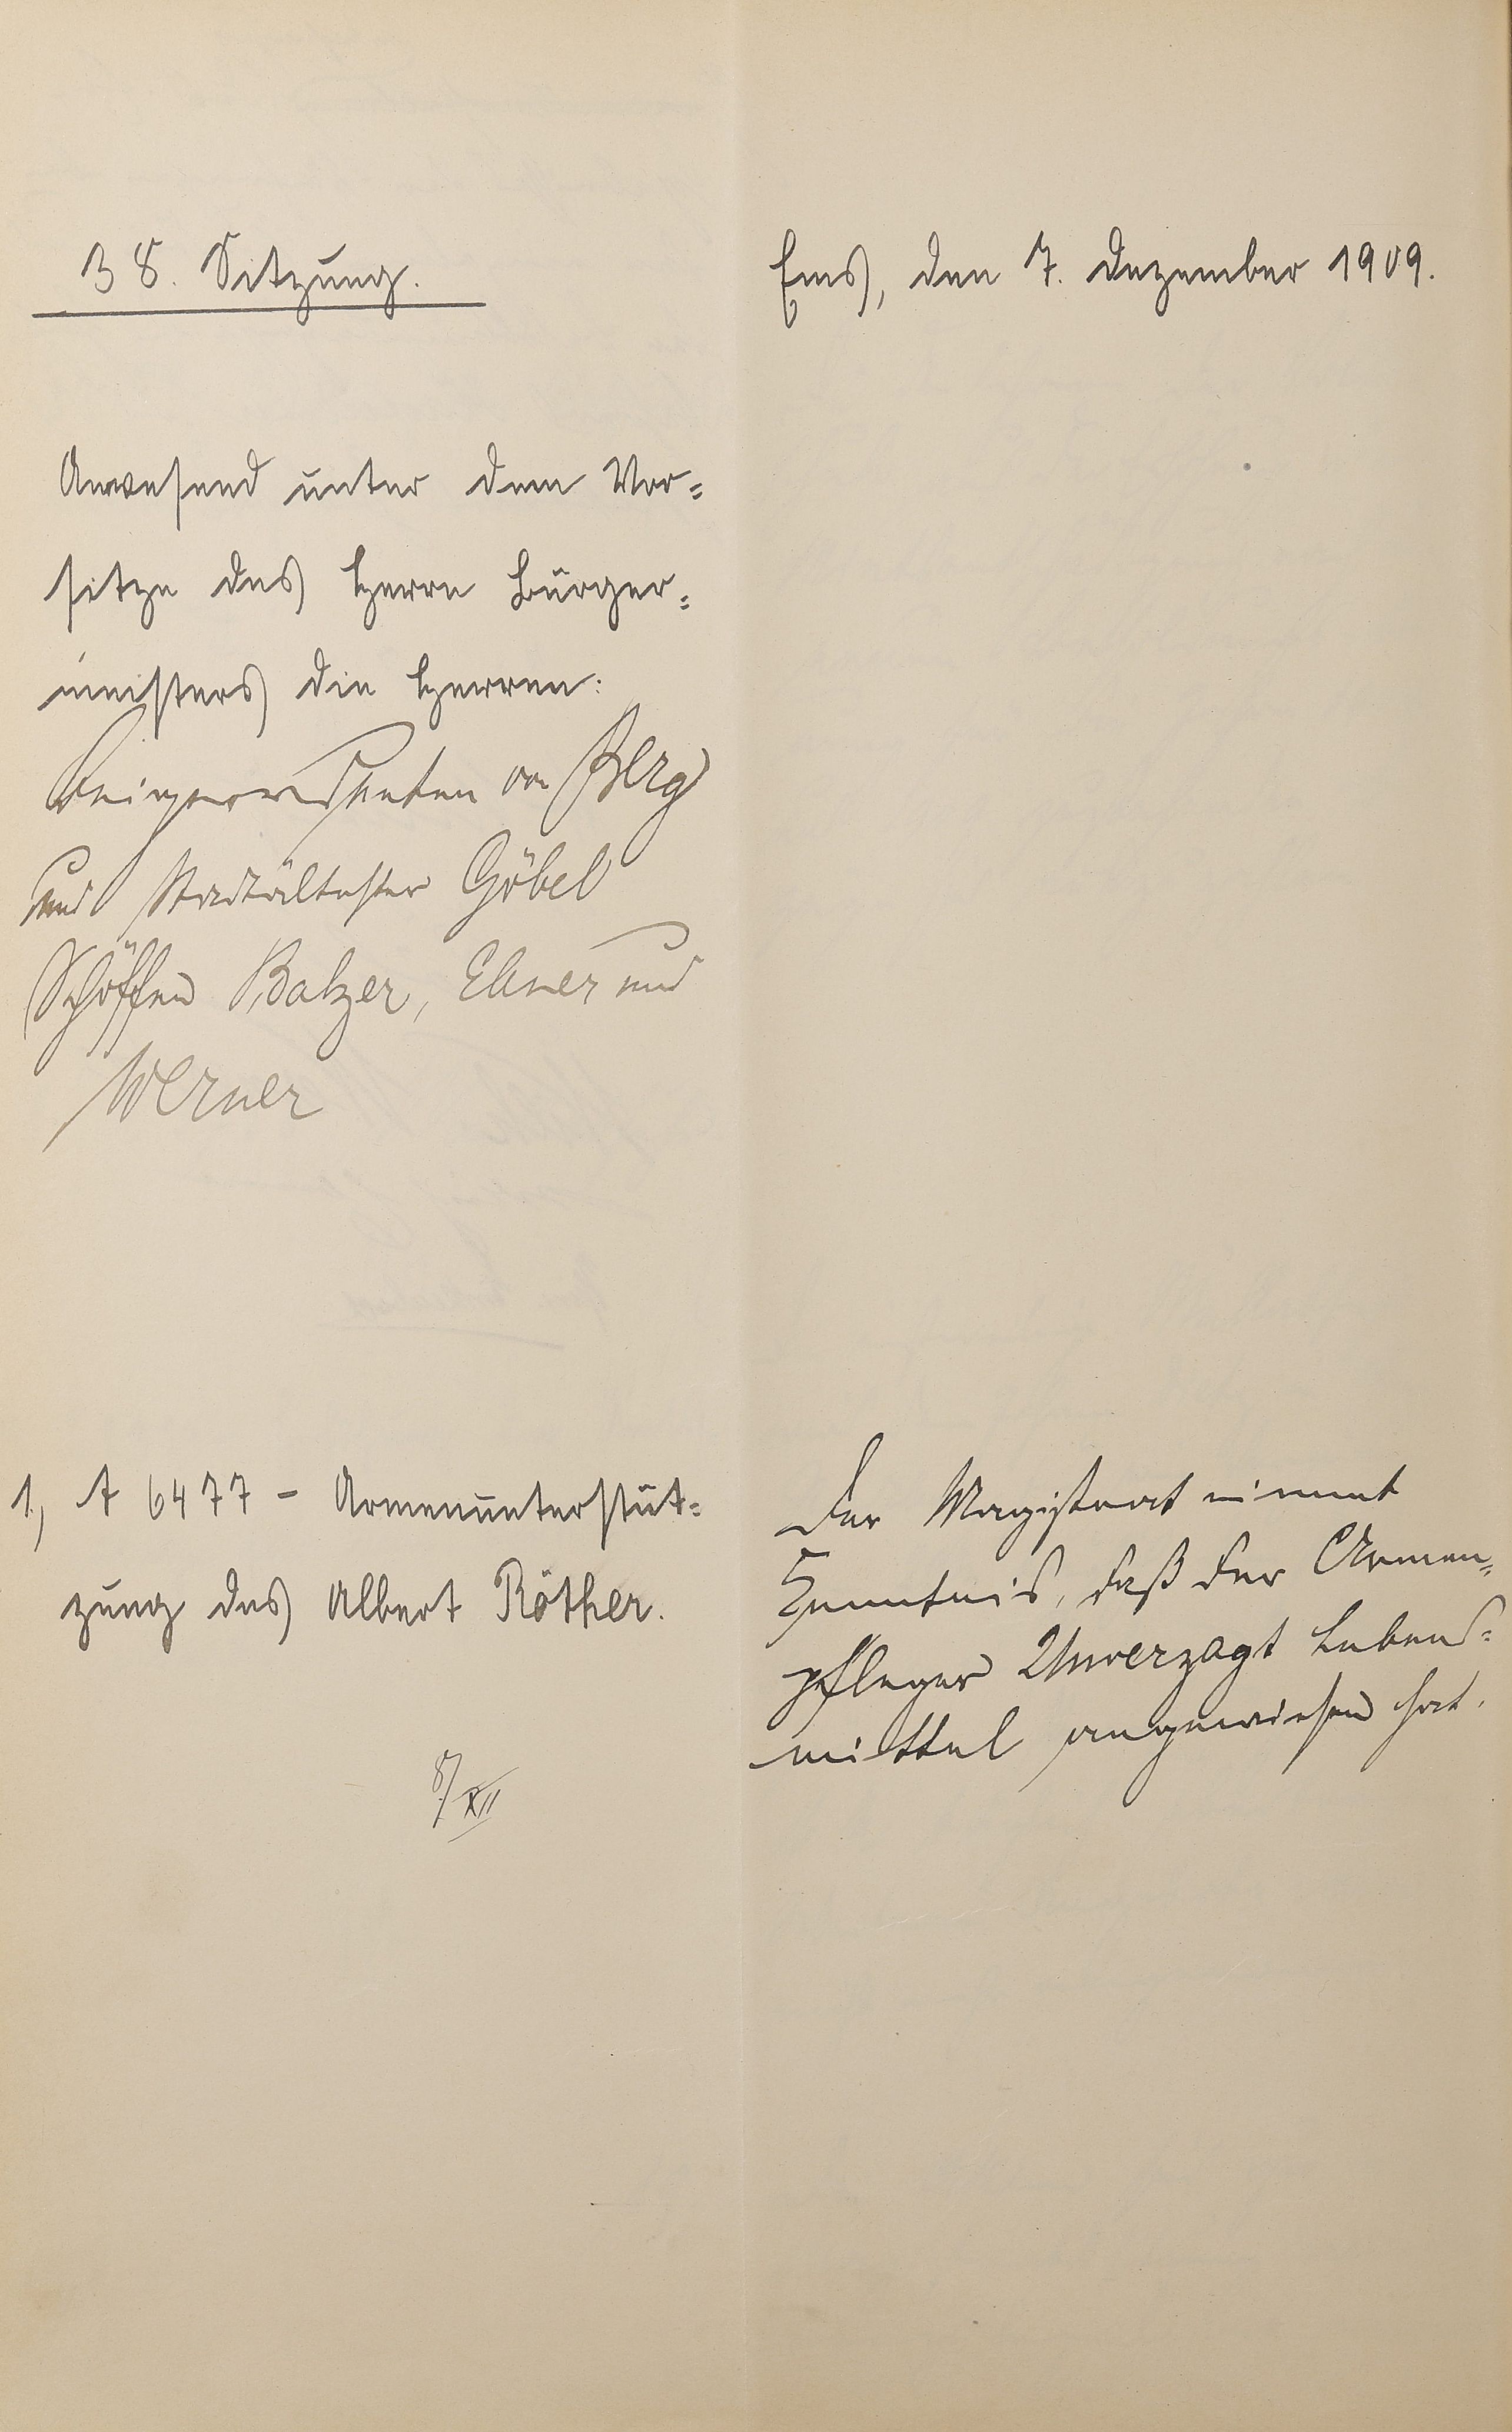 38. Sitzung.
Ems, den 7. Dezember 1909.
Anwesend unter dem Vor=
sitze des Herrn Bürger=
meisters die Herren:
Beigeordneten Berg
und Stadtältester Göbel
Schöffen Balzer, und
Werner
1, A 6477 - Armenunterstüt=
zung des Albert Röther.
8/XII
Der Magistrat nimmt
Kenntnis, daß der Armen=
pfleger Unverzagt Lebens=
mittel angewiesen hat.